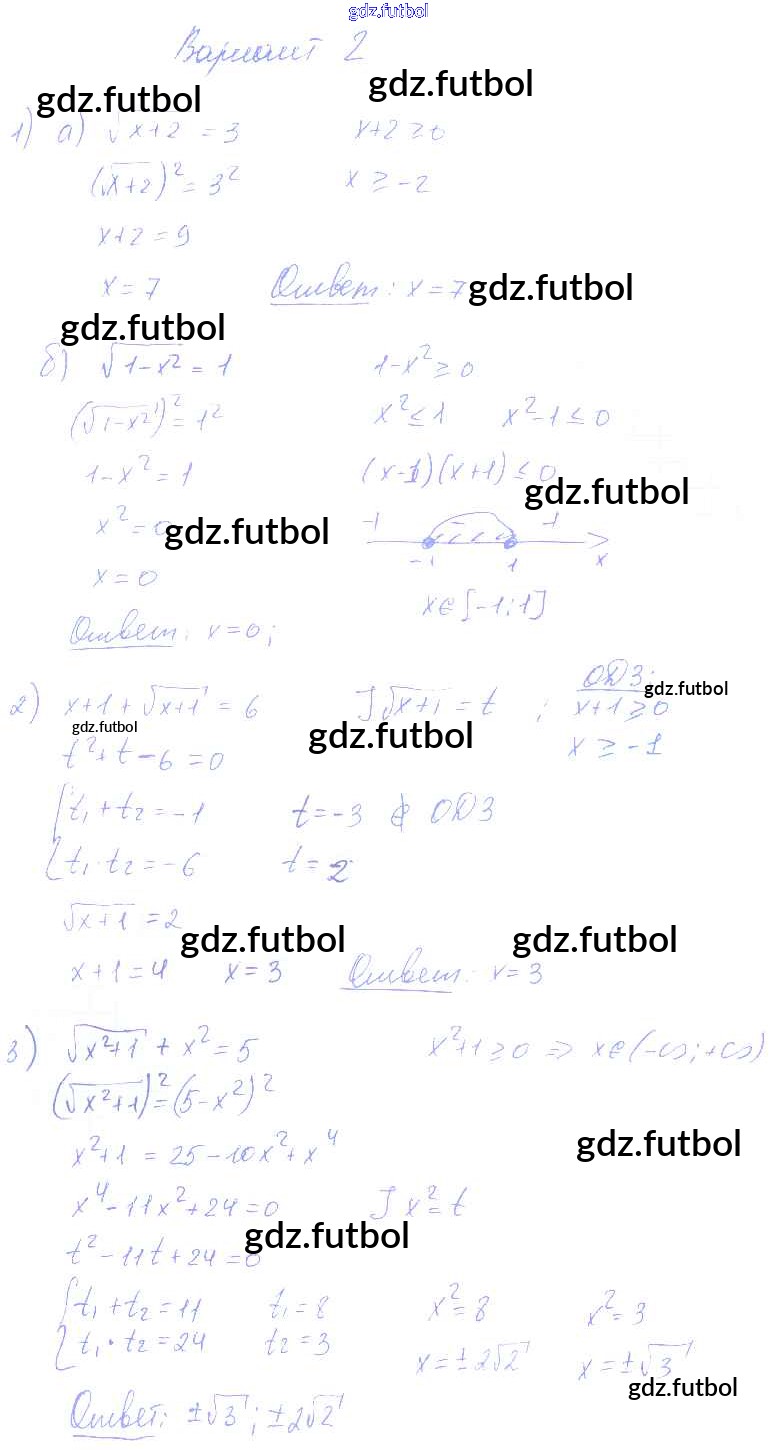 gdz.futbol
Вариант 2
gdz.futbol gdz.futbol
1) а) √x+2 = 3 x+2 ≥ 0
(√x+2)² = 3² x ≥ -2
x+2 = 9
x = 7 Ответ: x = 7 gdz.futbol
gdz.futbol
б) √1-x² = 1 1-x² ≥ 0
(√1-x²)² = 1² x² ≤ 1 x²-1 ≤ 0
1-x² = 1 (x-1)(x+1) ≤ 0
gdz.futbol
x² = 0 gdz.futbol
-1 1 x
x = 0 x∈[-1;1]
Ответ: x=0;
2) x+1+√x+1 = 6 √x+1 = t ; ОДЗ:
gdz.futbol
x+1 ≥ 0
gdz.futbol gdz.futbol
t²+t-6=0 x ≥ -1
{t₁+t₂=-1 t=-3 ∉ ОДЗ
{t₁·t₂=-6 t=2
√x+1 = 2
gdz.futbol gdz.futbol
x+1=4 x=3 Ответ: x=3
3) √x²+1 + x² = 5 x²+1 ≥ 0 => x∈(-∞;+∞)
(√x²+1)² = (5-x²)²
x²+1 = 25-10x²+x⁴ gdz.futbol
x⁴-11x²+24=0 x²=t
gdz.futbol
t²-11t+24=0
{t₁+t₂=11 t₁=8 x²=8 x²=3
{t₁·t₂=24 t₂=3 x=±2√2 x=±√3
gdz.futbol
Ответ: ±√3; ±2√2